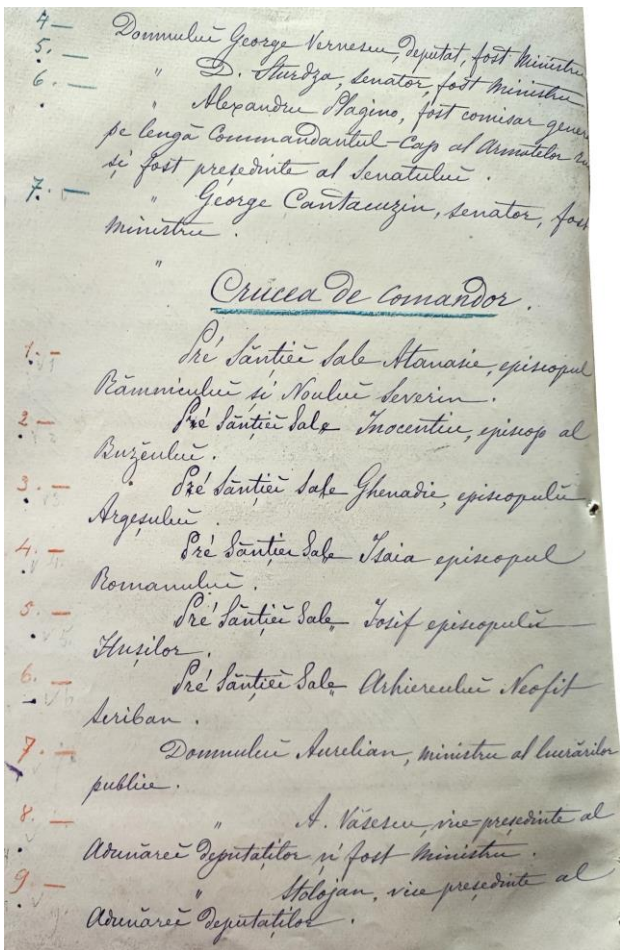 4 — Domnuluĭ George Vernescu, deputat, fost Ministru
5. — " D. Sturdza, senator, fost Ministru
6. — " Alexandru Plagino, fost comisar gener
pe lengă Commandantul-Cap al Armatelor
și fost președinte al Senatuluĭ.
7. — " George Cantacuzin, senator, fost
Ministru.
"
Crucea de comandor.
1. — Pré Sânției Sale Atanasie, episcopul
Râmniculuĭ și Nouluĭ Severin.
2 — Pré Sânției Sale Inocentiu, episcop al
Buzĕuluĭ.
3. — Pré Sânției Sale Ghenadie, episcopuluĭ
Argeșuluĭ.
4. — Pré Sânției Sale Isaia episcopul
Romanuluĭ.
5 — Pré Sânției Sale Iosif episcopuluĭ
Hușilor.
6. — Pré Sânției Sale Arhiereuluĭ Neofit
Scriban.
7. — Domnuluĭ Aurelian, ministru al lucrărilor
publice.
8. — " A. Văsescu, vice=președinte al
Adunăreĭ deputaților și fost Ministru.
9 — " Stolojan, vice președinte al
Adunăreĭ deputaților.